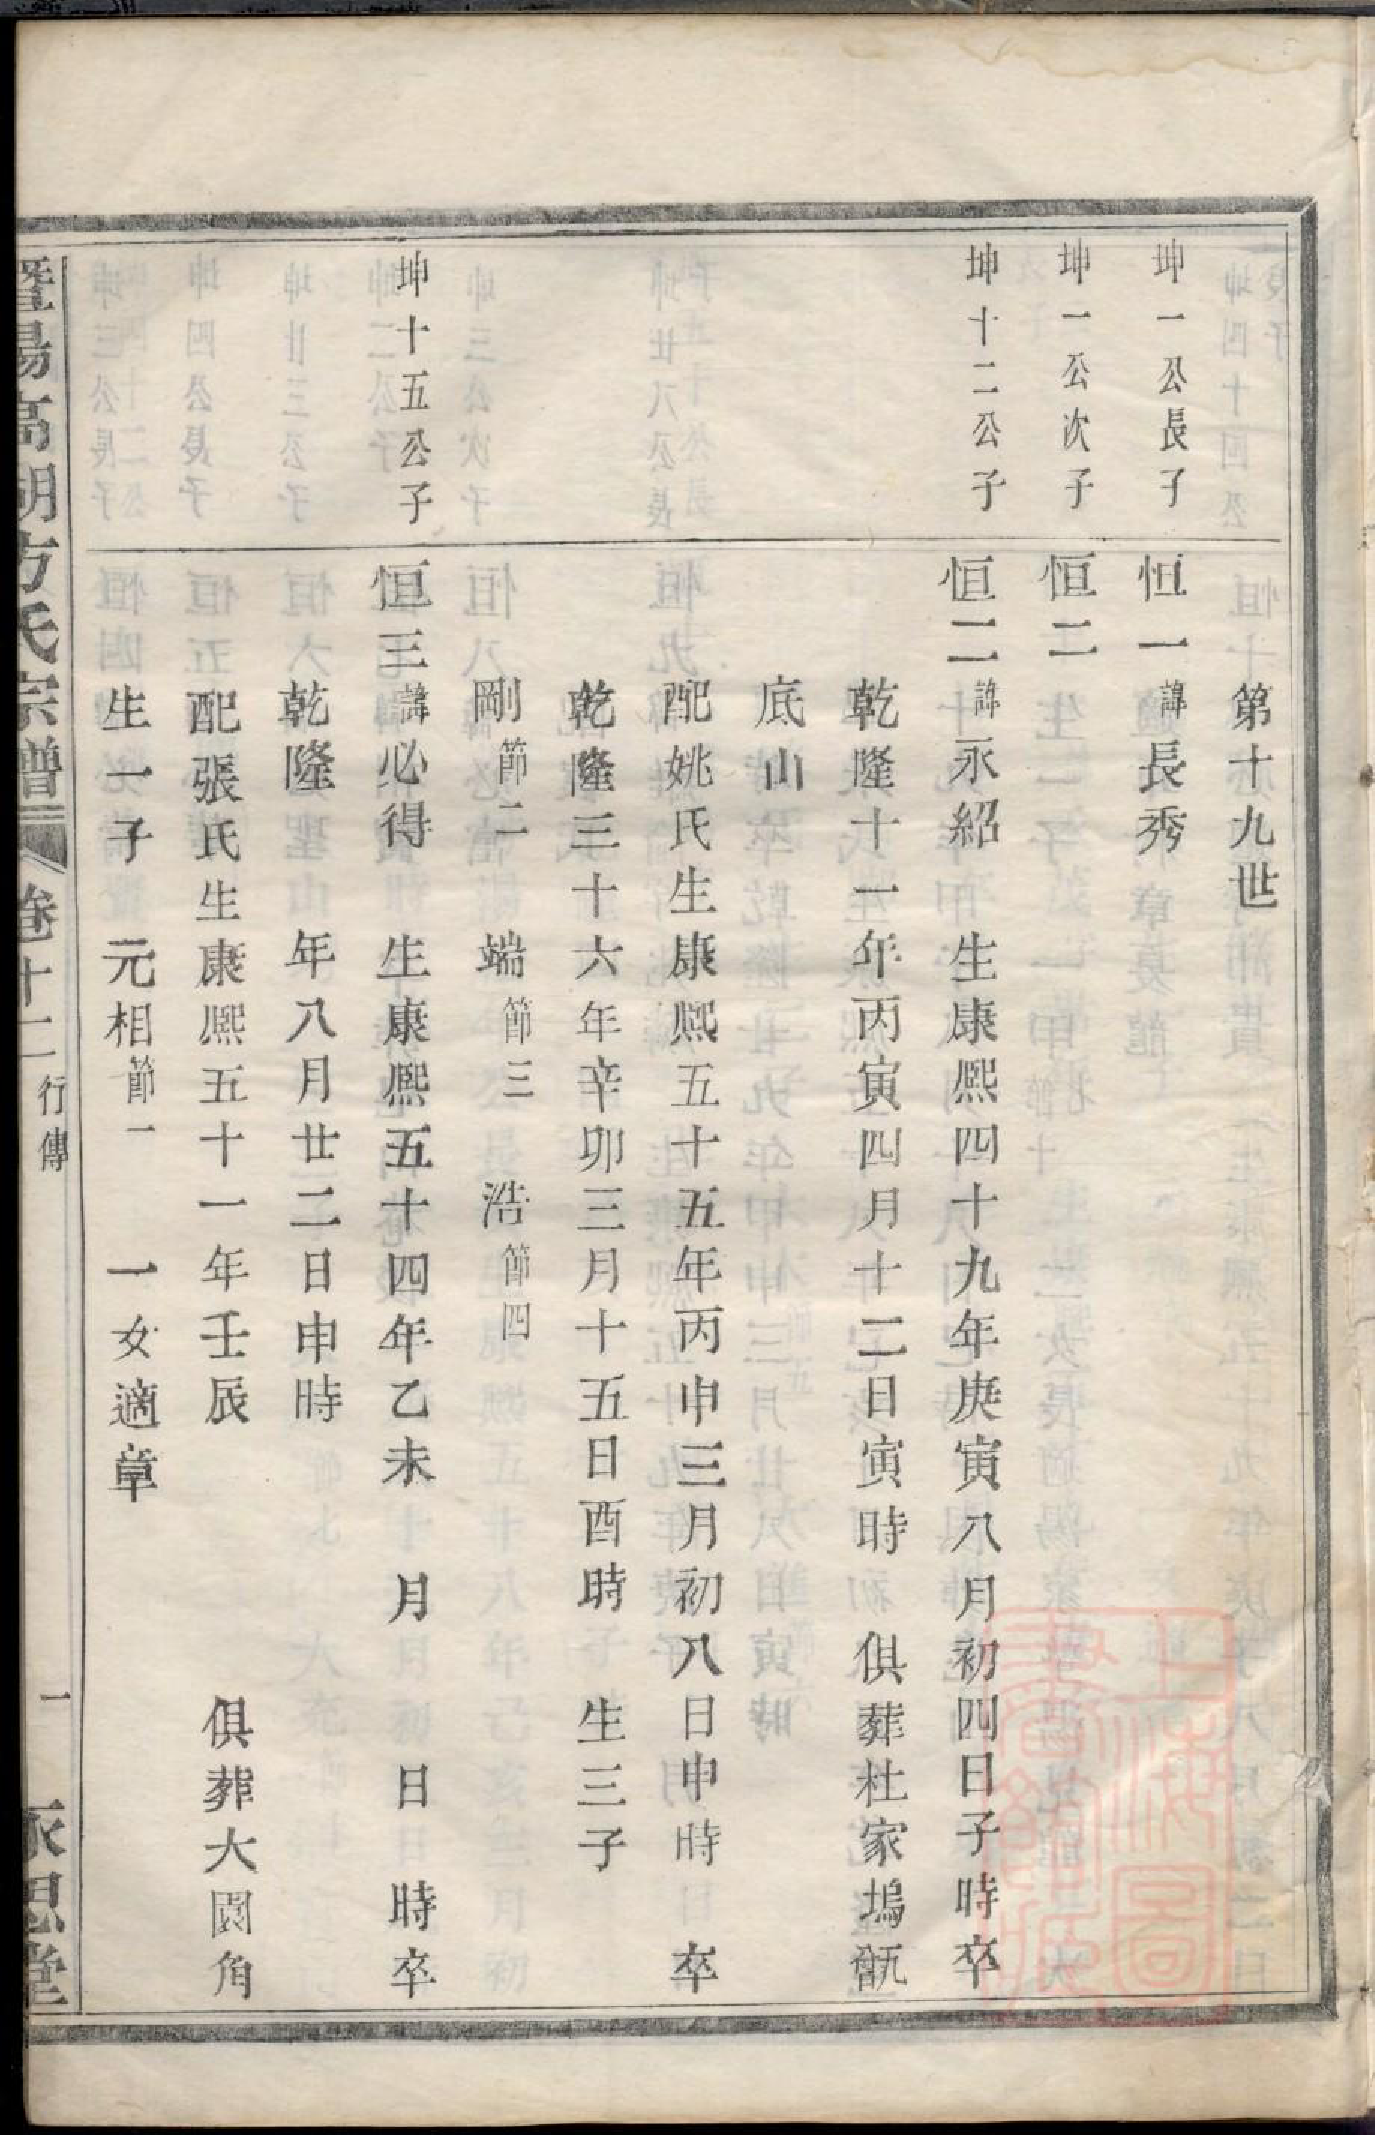 第十九世
坤一公長子
恒一 諱長秀
坤一公次子
恒二
坤十二公子
恒二 諱永紹 生康熙四十九年庚寅八月初四日子時卒
乾隆十一年丙寅四月十二日寅時 俱葬杜家塢甑
底山
配姚氏生康熙五十五年丙申三月初八日申時 卒
乾隆三十六年辛卯三月十五日酉時 生三子
剛節二 端節三 浩節四
坤十五公子
恒三 諱必得 生康熙五十四年乙未 月 日 時卒
乾隆 年八月廿二日申時
配張氏生康熙五十一年壬辰 俱葬大園角
生一子 元相節一 一女適章
暨陽高湖方氏宗譜 卷十二 行傳 一 永思堂
上海圖書館藏